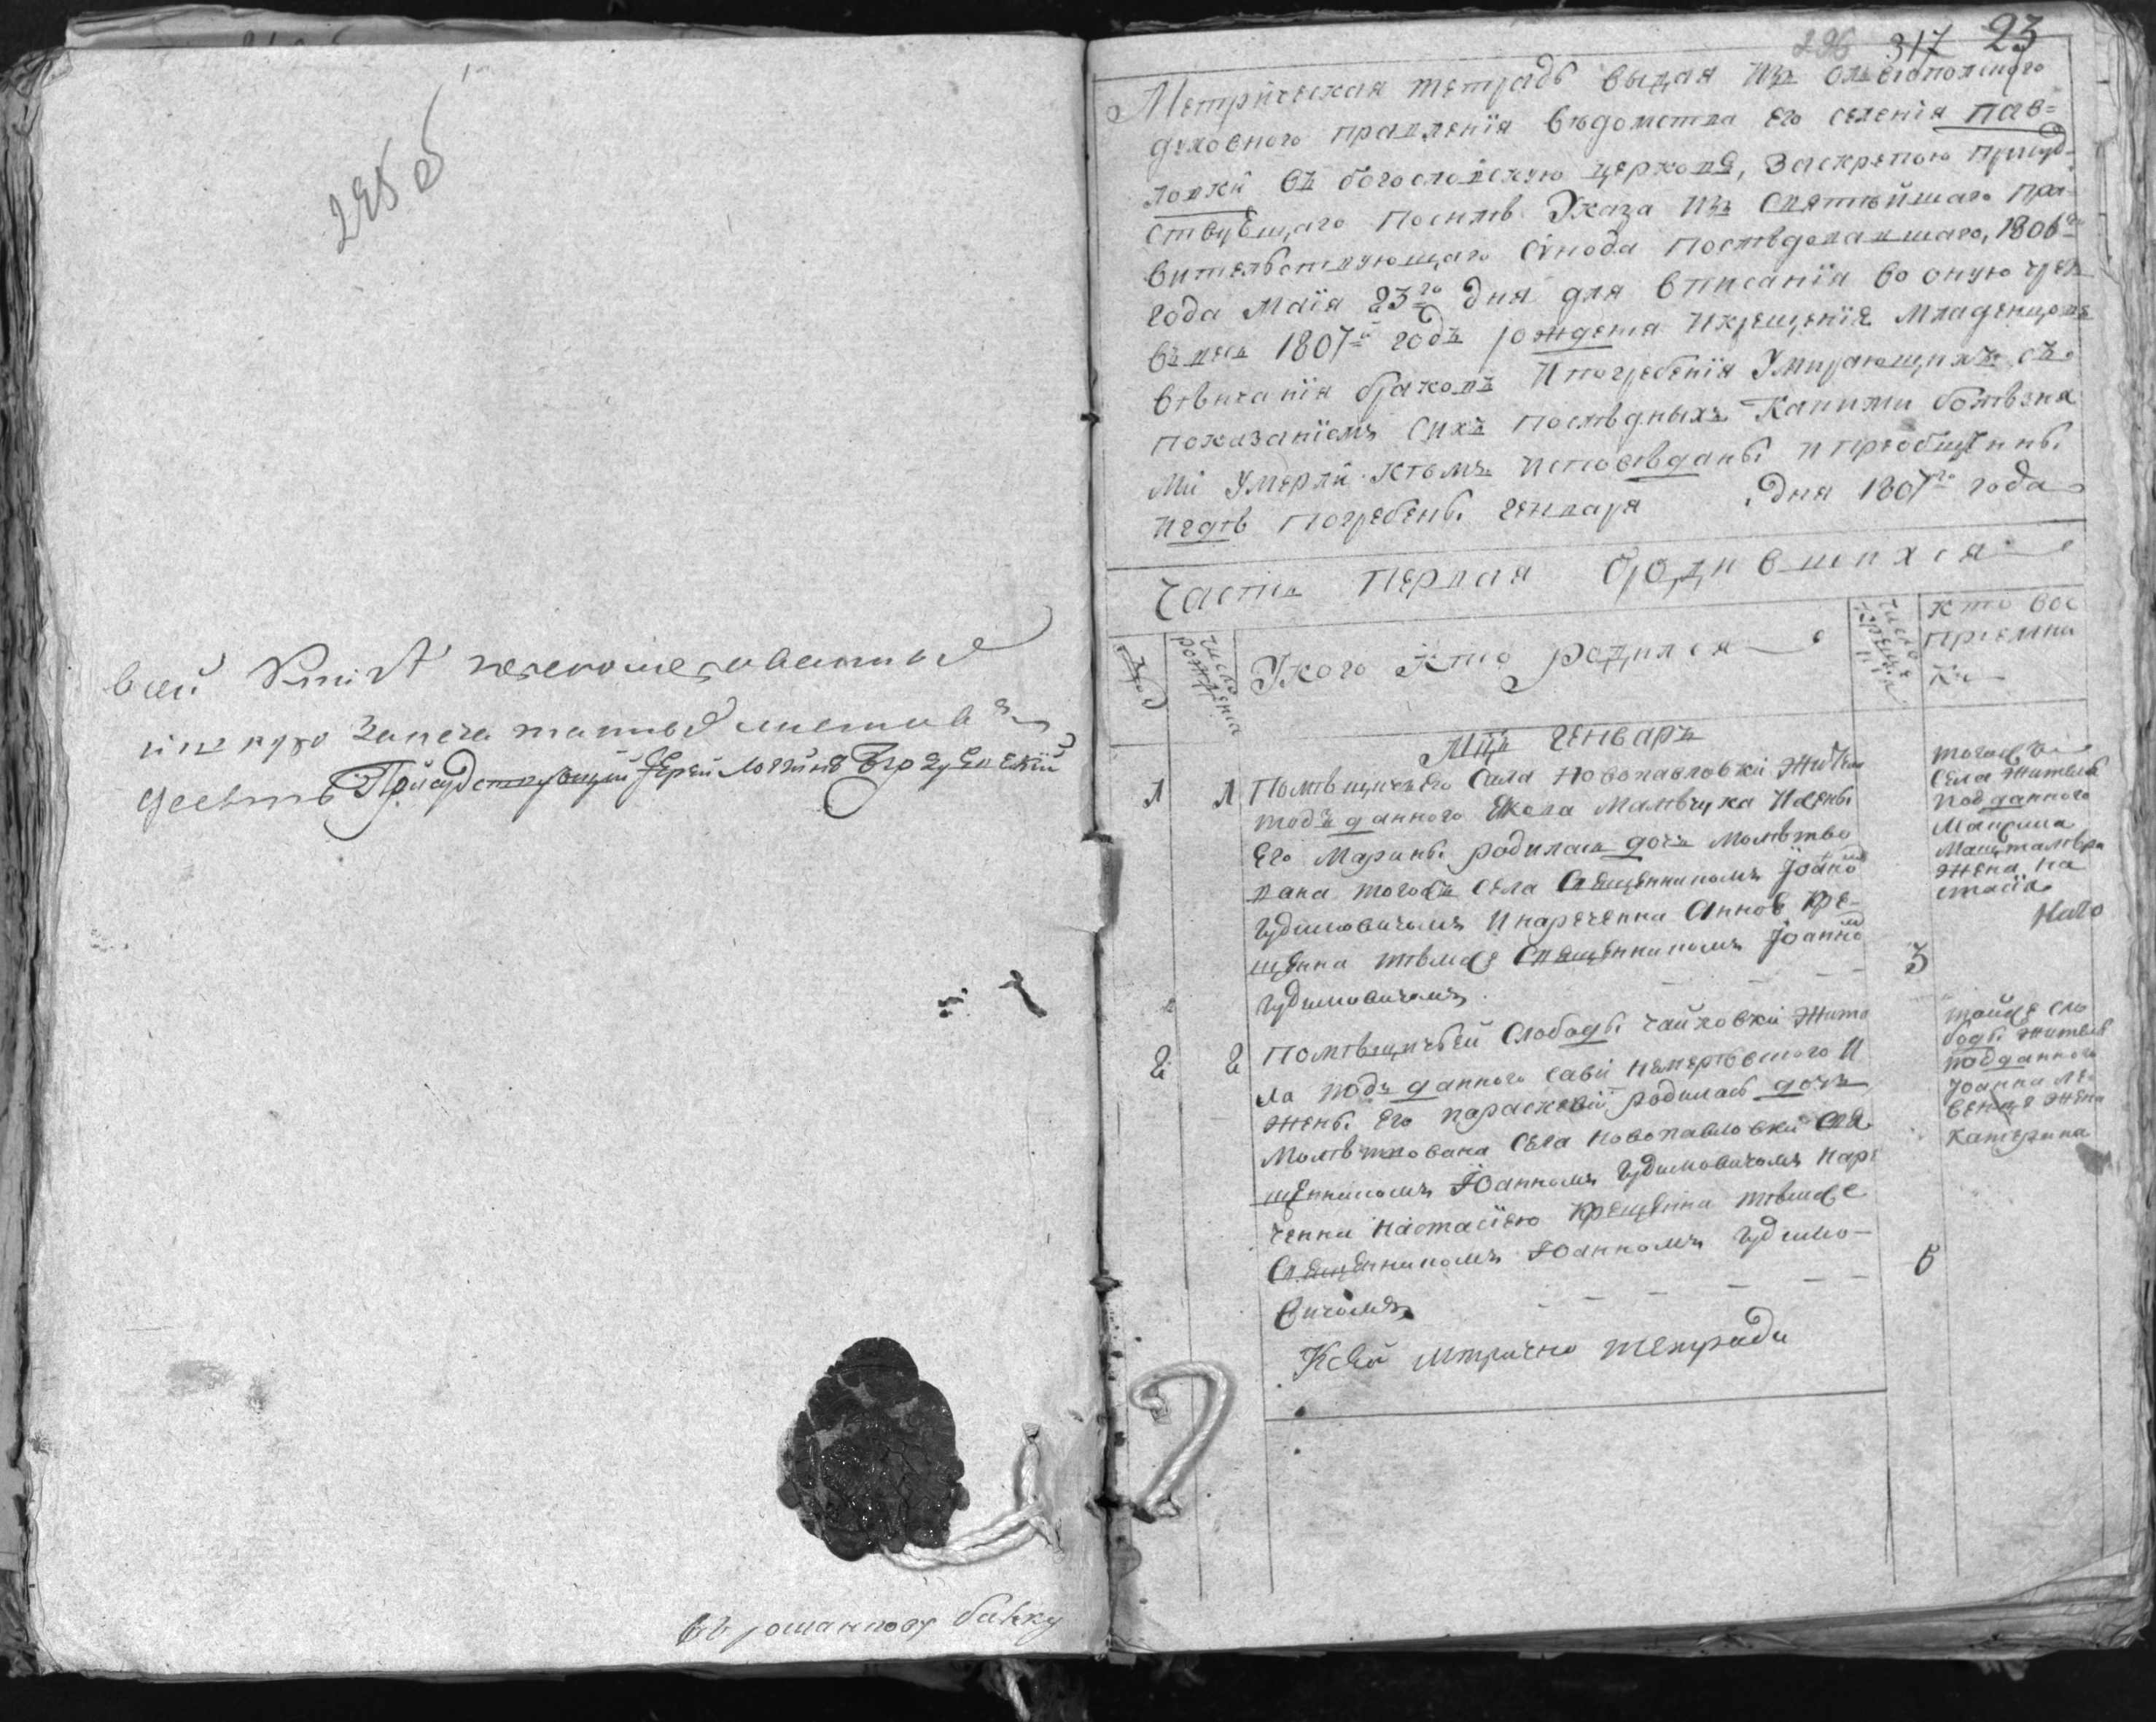 285 б
въ сей книгѣ
и шнуро запечатанныхъ листовъ
десеть Присудствующий Іерей Логгинъ
296 317 23
Метрическая тетрадь выдан изъ Ольвіополского
духовного правленія вѣдомства его селенія Пав=
ловки въ богословскую церковь, заскрепою присуд-
ствующаго посилѣ Указа изъ Святѣйшаго Пра-
вительствующаго Сѵнода послѣдовавшаго, 1806го
года Маія 23го дня для вписанія во оную чрезъ
весь 1807й годъ рождения икрещенія младенцовъ
вѣнчанія браковъ И погребенія Умирающихъ съ
показаніемъ сихъ послѣдныхъ Какими болѣзня
ми Умерли ктомъ исповѣданы и преобщенны
игдѣ погребены генваря дня 1807го года
Часть Первая О родившихся
число рожденія
Укого кто родился
число крещенія
кто вос
пріемни
къ
Мцъ генварь
1 1 Помѣщичьего села Новопавловки жителя
подъданного Мамѣчука Ижены
его Марины родилась дочь Молитво
вана тогожъ села Священникомъ Іоанно
Гудимовичомъ Инареченна Анною кре-
щенна тѣмже Священникомъ Іоанно
Гудимовичомъ 3
тогожъ
села жителя
подданного
Маѯима
жена На
стасія
2 2 Помѣщичьей Слободы Чайковки жите
ля подъданного Савы И
жены его Параскевии родилась дочь
Молитвована села Новопавловки Свя
щенникомъ Іоанномъ Гудимовичомъ наре
ченна Настасіею крещенна тѣмже
Священникомъ Іоанномъ Гудимо-
вичомъ 5
тойже сло
боды жителя
подданного
Іоанна Ле
жена
Катерина
Ксей мтричне тетради